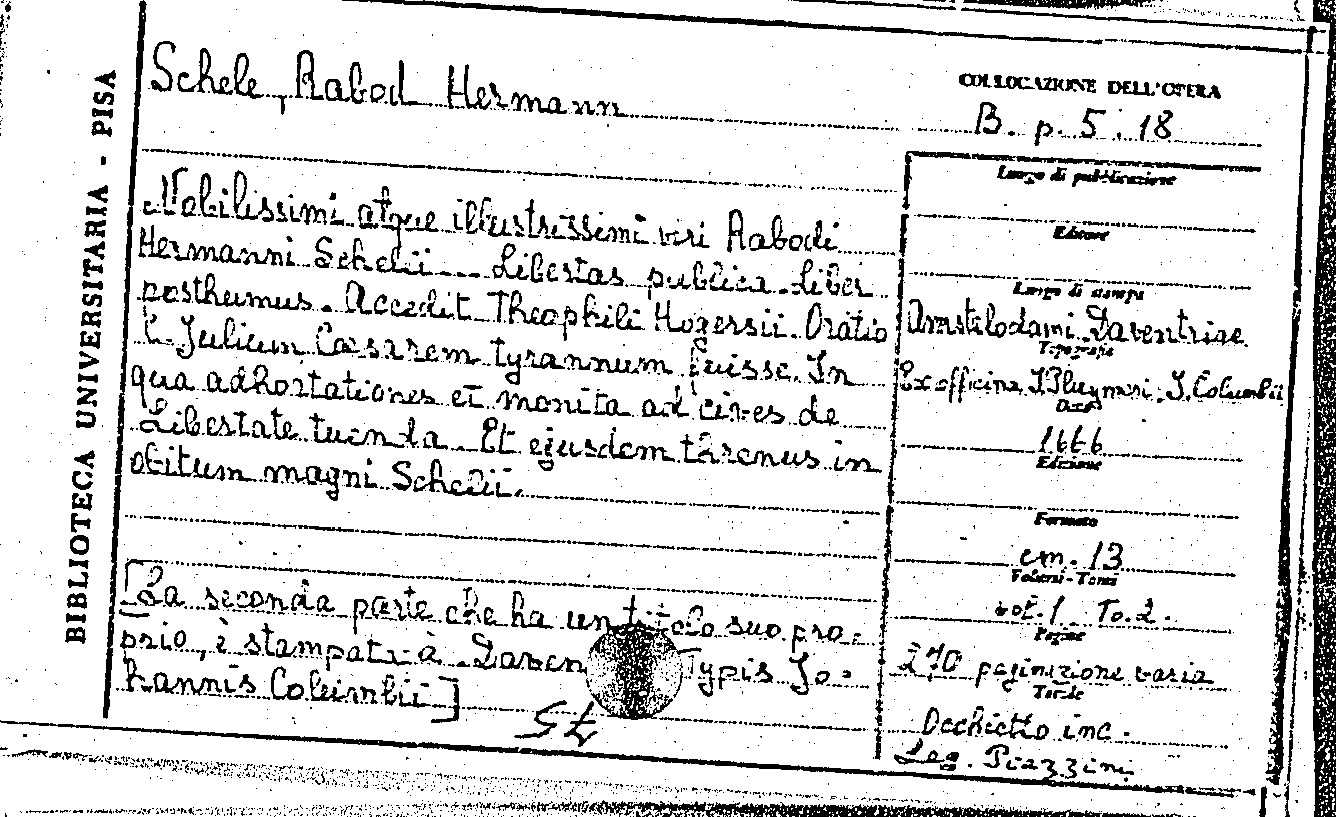 BIBLIOTECA UNIVERSITARIA - PISA
Schele, Rabod Hermann
Nobilissimi atque illustrissimi viri Rabodi
Hermanni Schelii... Libertas publica. Liber
posthumus. Accedit Theophili Hogersii Oratio
C. Julium Cæsarem tyrannum fuisse. In
qua adhortationes et monita ad cives de
Libertate tuenda. Et ejusdem threnus in
obitum magni Schelii.
[La seconda parte che ha un titolo suo pro=
prio, è stampata à Daven Typis Jo=
hannis Columbii]
COLLOCAZIONE DELL'OPERA
B. p. 5. 18
Luogo di pubblicazione
Editore
Luogo di stampa
Amstelodami. Daventriae
Tipografo
Ex officina J. Pluymeri; J. Columbii
Data
1666
Edizione
Formato
cm. 13
Volumi - Tomi
vol. 1 To. 2.
Pagine
270 paginazione varia
Tavole
Occhietto inc.
Leg. Piazzini